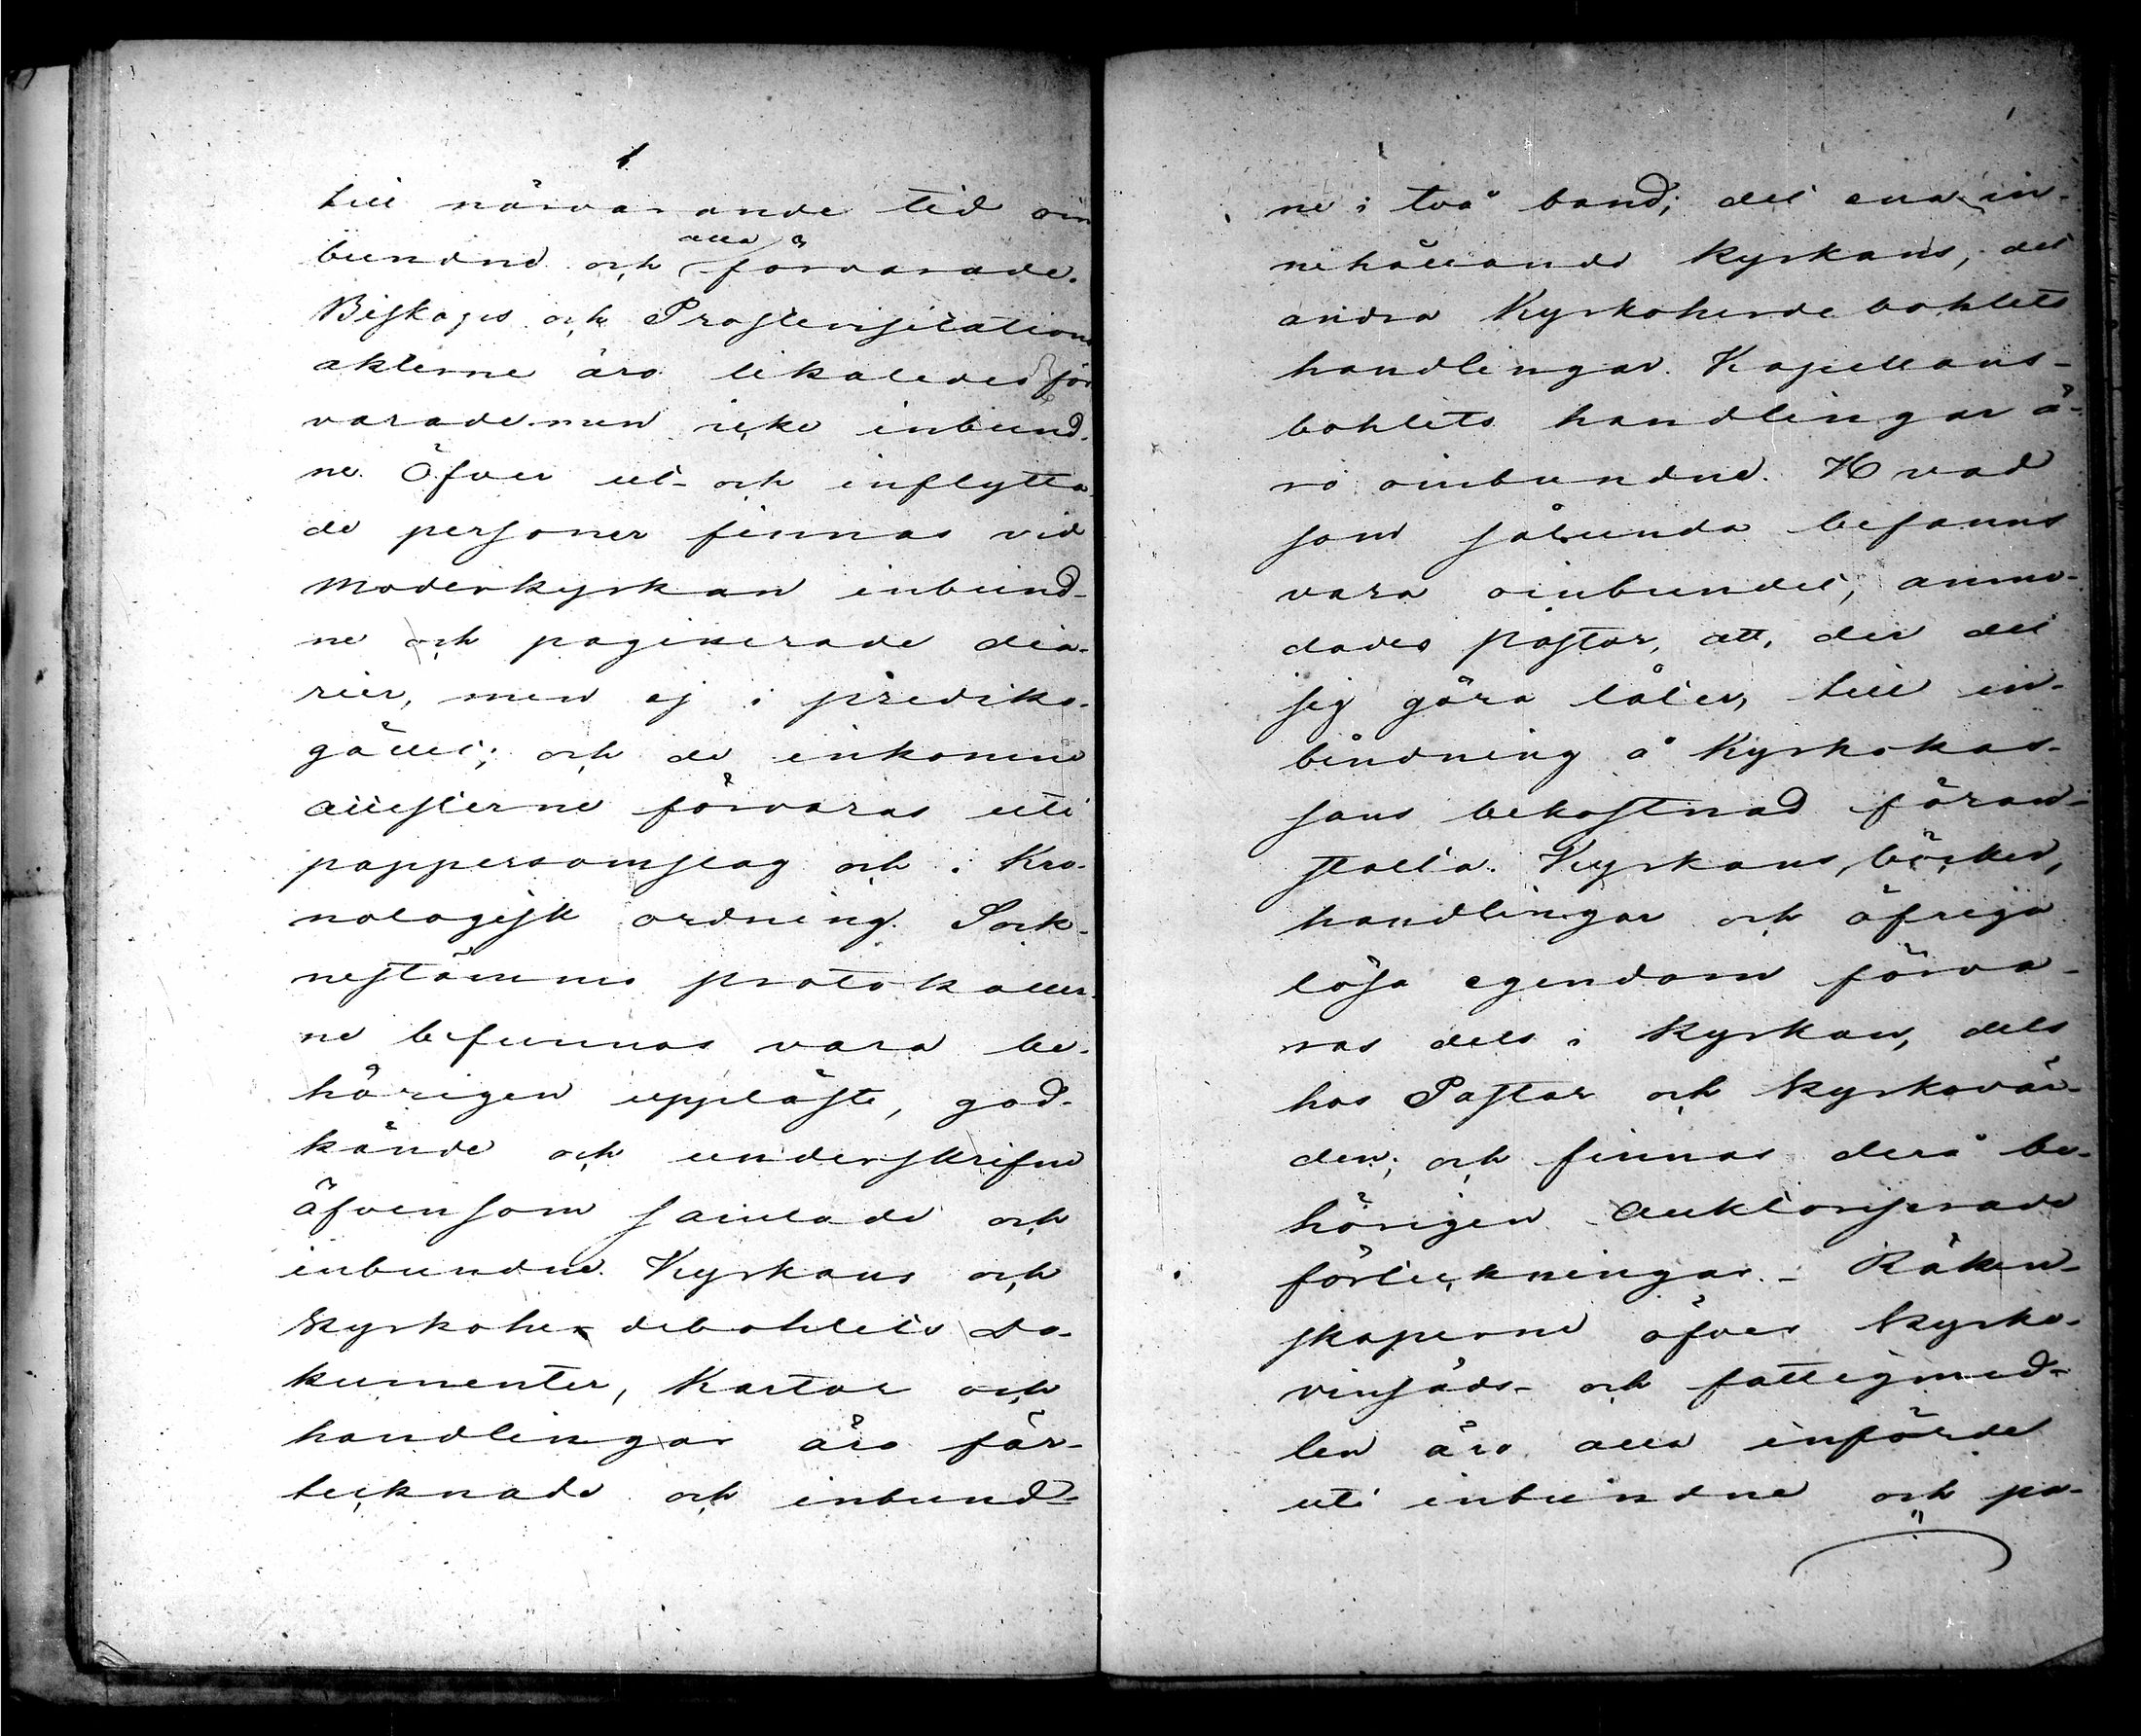 till närvarande tid oin
bundne och alla förvarade.
Biskops och Prostevisitations
akterne äro likaledes för
varade men icke inbund-
ne. Öfver ut- och inflytta-
de personer finnas vid
Moderkyrkan inbund-
ne och paginerade dia-
rier, men ej i prediko-
gället; och de inkomne
attesterne förvaras uti
pappersomslag och i Kro-
nologisk ordning. Sock-
nestämmo protokoller-
ne befunnos vara be-
hörigen uppläste, god-
kände och underskrifne
äfvensom samlade och
inbundne. Kyrkans och
Kyrkoherdebohlets do-
kumenter, Kartor och
handlingar äro för-
tecknade och inbund-
ne i två band; det ena in-
nehållande Kyrkans, det
andra Kyrkoherdebohlets
handlingar. Kapellans-
bohlets handlingar ä-
ro oinbundne. Hvad
som sålunda befanns
vara oinbundet, anmo-
dades Pastor, att, der det
sig göra låter, till in-
bindning å Kyrkokas-
sans bekostnad föran-
stalta. Kyrkans, böcker,
handlingar och öfriga
lösa egendom förva-
ras dels i Kyrkan, dels
hos Pastor och Kyrkovär-
den; och finnas derå be-
hörigen auktoriserade
förteckningar. – Räken-
skaperne öfver Kyrko-
vinsäds- och fattigmed-
len äro alla införde
uti inbundne och pa-